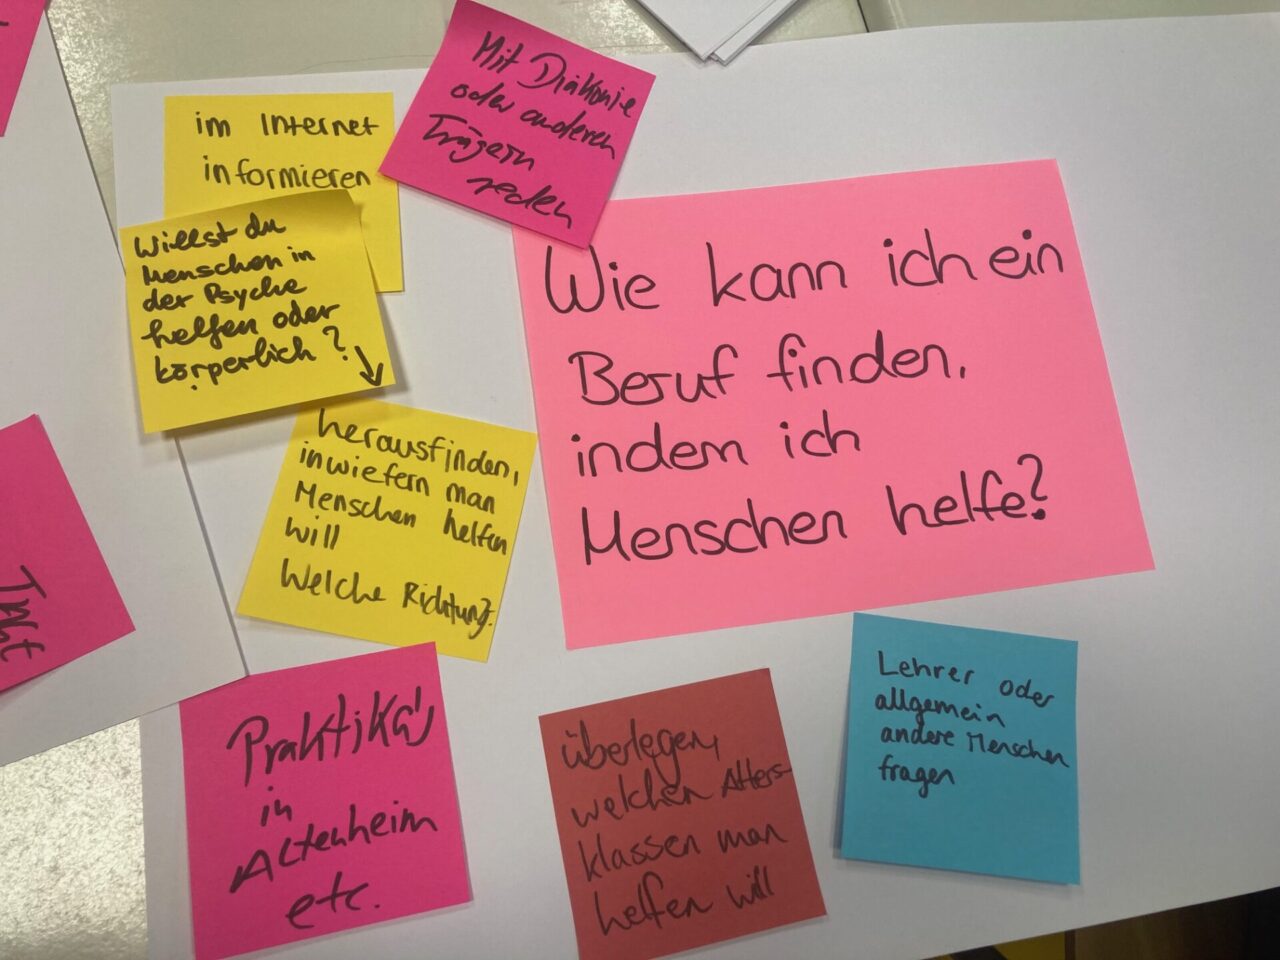 Wie kann ich ein
Beruf finden,
indem ich
Menschen helfe?
Mit Diakonie
oder anderen
Trägern
reden
im Internet
informieren
Willst du
Menschen in
der Psyche
helfen oder
körperlich?
herausfinden,
inwiefern man
Menschen helfen
will
Welche Richtung?
Praktika
in
Altenheim
etc.
überlegen,
welchen Alters-
klassen man
helfen will
Lehrer oder
allgemein
andere Menschen
fragen